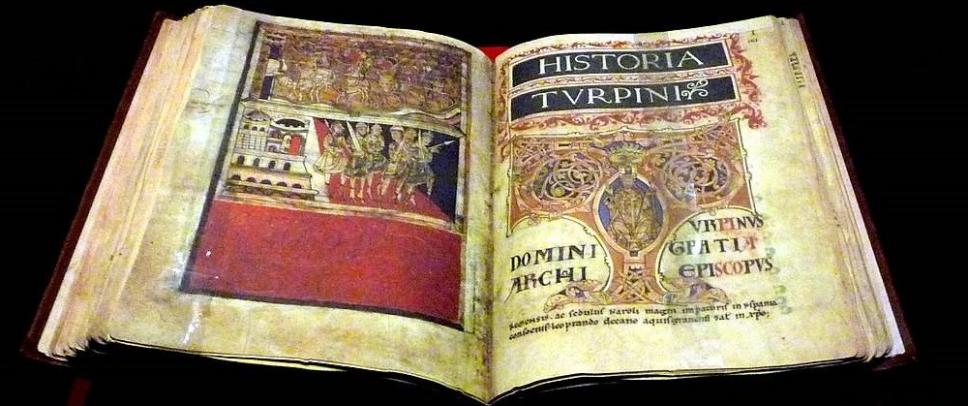 HISTORIA
TVRPINI
TVRPINVS
DOMINI GRATIA
ARCHI EPISCOPVS
remensis. ac sedulus karoli magni imperatoris in
consocius leoprando decano aquisgranensi in xpo;